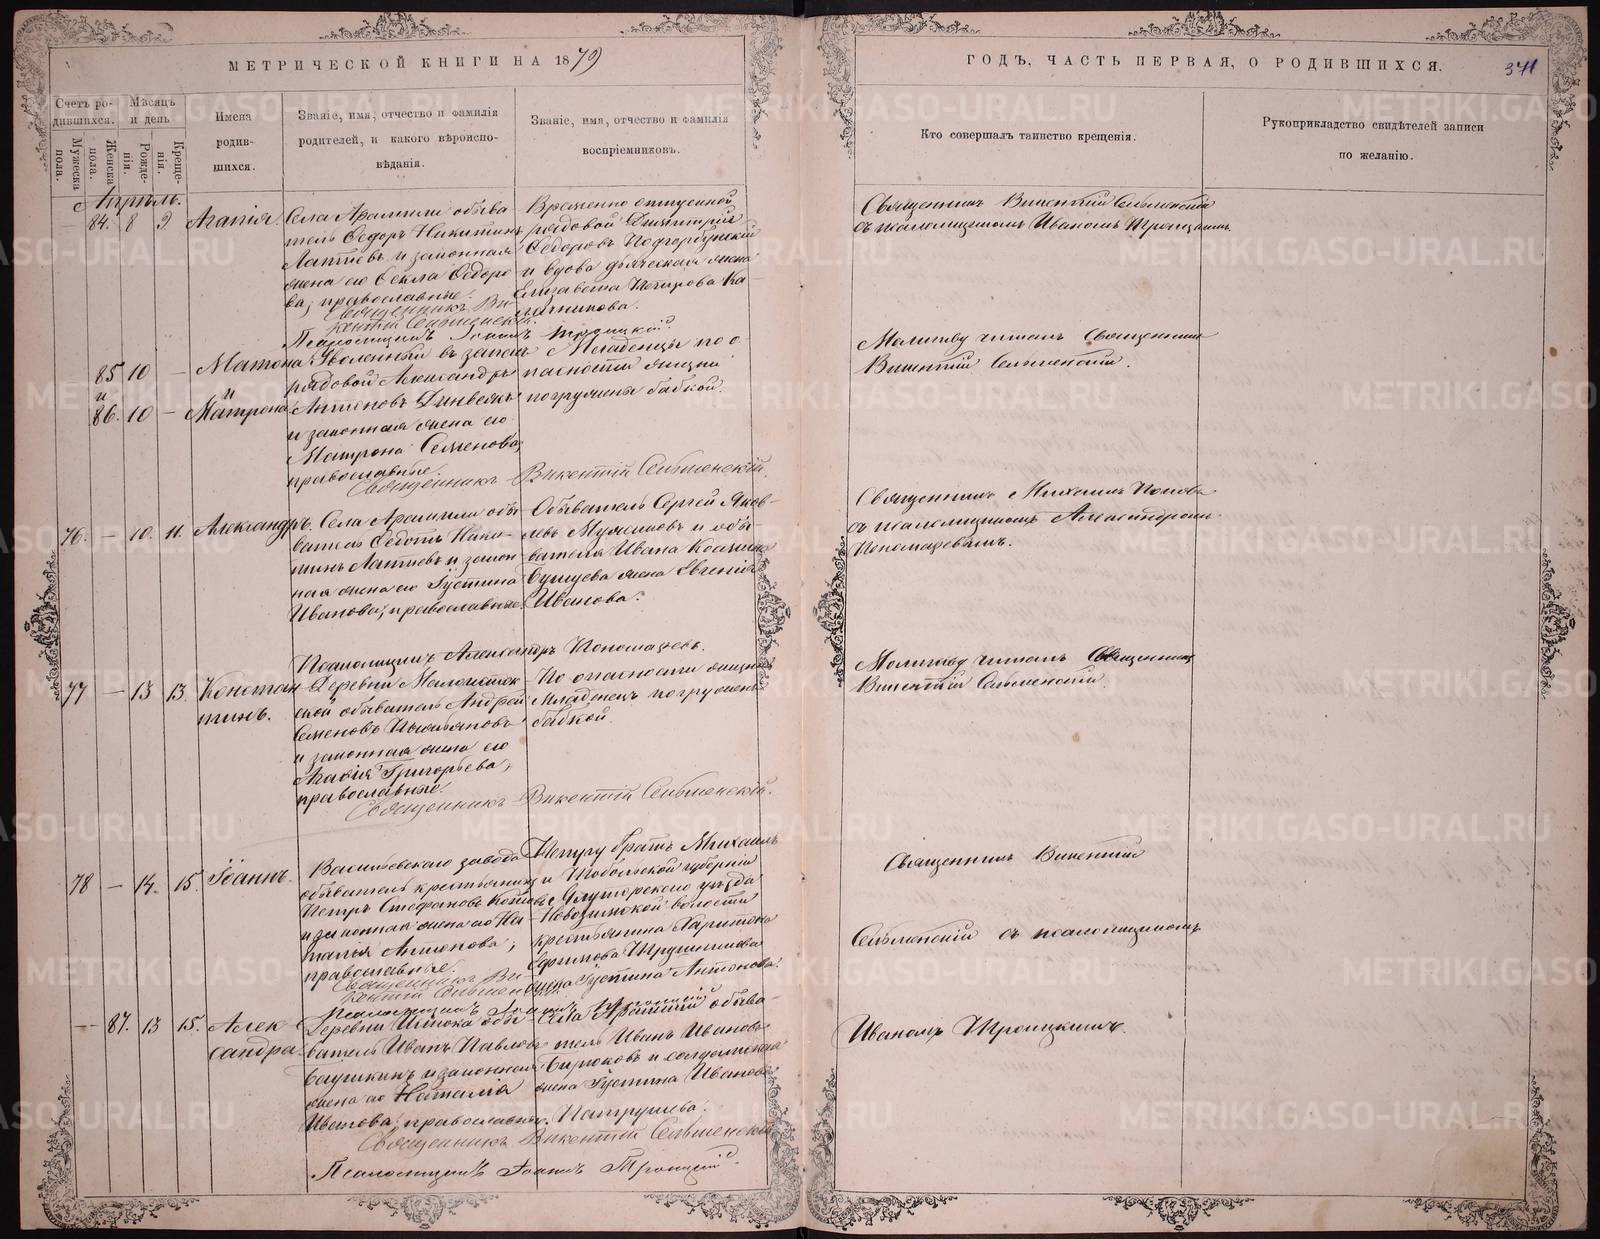 МЕТРИЧЕСКОЙ КНИГИ НА 1879
ГОДЪ, ЧАСТЬ ПЕРВАЯ, О РОДИВШИХСЯ.
371
Счетъ родившихся.
Мужеска пола.
Женска пола.
Мѣсяцъ и день
Рожденія.
Крещенія.
Имена родившихся.
Званіе, имя, отчество и фамилія
родителей, и какого вѣроиспо-
вѣданія.
Званіе, имя, отчество и фамилія
воспріемниковъ.
Кто совершалъ таинство крещенія.
Рукоприкладство свидѣтелей записи
по желанію.
Апрѣль.
84. 8 9. Агапія.
Села Арамили обыва
тель Ѳедоръ Никитинъ
Лаптевъ и законная
жена его Ѳекла Ѳедоро
ва, православные.
Священникъ Ви-
кентій Сельменскій.
Псаломщикъ Іоаннъ Троицкій.
Временно отпускной
рядовой Димитрій
Ѳедоровъ
и вдова дьяческая жена
Елизавета
Священникъ Викентій Сельменскій
съ псаломщикомъ Иваномъ Троицкимъ.
85 10 —
и
86. 10 — Матрона
Уволенный въ запасъ
рядовой Александръ
Антоновъ
и законная жена его
Матрона Семенова,
православные.
Священникъ Викентій Сельменскій.
Младенцы по о
пасности жизни
погружены бабкой.
Молитву читалъ Священникъ
Викентій Сельменскій.
76. — 10. 11. Александръ.
Села Арамили обы
ватель Ѳедотъ Ники-
тинъ Лаптевъ и закон
ная жена его Іустина
Иванова, православные.
Псаломщикъ Александръ Пономаревъ.
Обыватель Сергей Яков-
левъ и обы
вателя Ивана Косьмина
жена Евгенія
Иванова.
Священникъ Михаилъ Поповъ
съ псаломщикомъ Александромъ
Пономаревымъ.
77 — 13 13. Констан
тинъ.
Деревни
ской обыватель Андрей
Семеновъ
и законная жена его
Агафія Григорьева,
православные.
Священникъ Викентій Сельменскій.
По опасности жизни
младенецъ погруженъ
бабкой.
Молитву читалъ Священникъ
Викентій Сельменскій.
78 — 14. 15. Іоаннъ.
Васильевскаго завода
обыватель крестьянинъ
Петръ Стефановъ
и законная жена его На
талья Антонова,
православные.
Священникъ Ви-
кентій Сельменскій
Псаломщикъ Іоаннъ Троицкій
Петру братъ Михаилъ
и Тобольской губерніи
Ялуторскаго уѣзда
волости
крестьянина Харитона
жена Іустина Антонова.
Священникъ Викентій
Сельменскій съ псаломщикомъ
Иваномъ Троицкимъ.
— 87. 13 15. Алек
сандра.
Деревни Истока обы-
ватель Иванъ Павловъ
и законная
жена его Наталія
православные.
Села Арамили обыва-
тель Иванъ Ивановъ
Бирюковъ и солдатская
жена Іустина Иванова
Патрушева.
Священникъ Викентій Сельменскій
Псаломщикъ Іоаннъ Троицкій.
METRIKI.GASO-URAL.RU